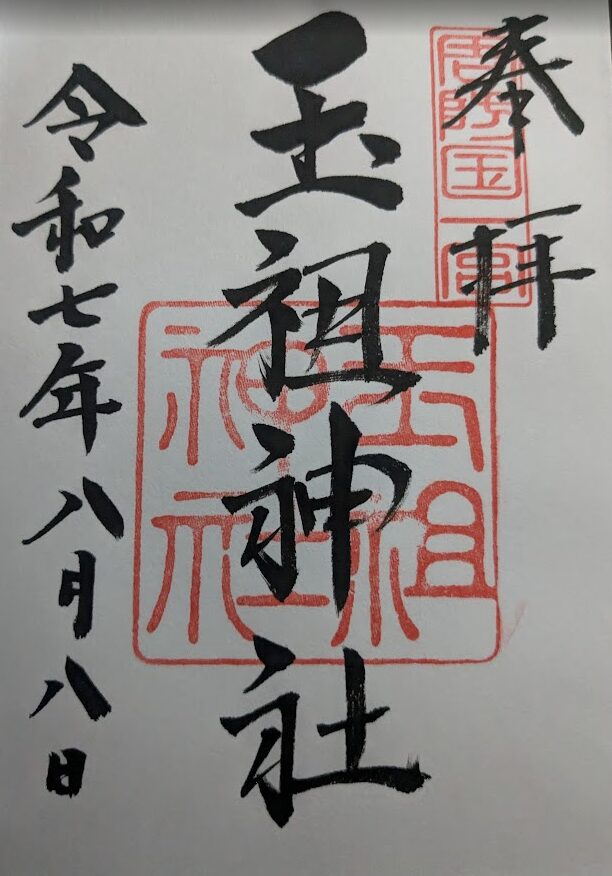 奉拝
周防国一宮
玉祖神社
玉祖神社
令和七年八月八日